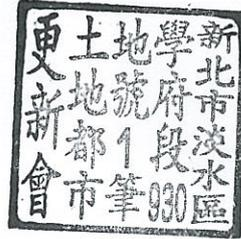 新北市淡水區
學府段930
地號1筆
土地都市
更新會